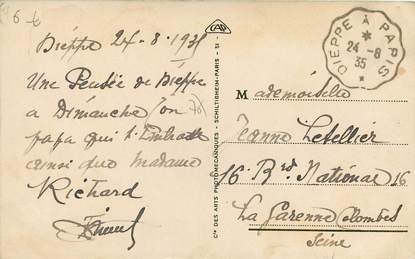 6 €
Dieppe 24-8-1935
Une Pensée de Dieppe
a Dimanche ton
papa qui t'Embrasse
ainsi que Madame
Richard
Cie DES ARTS PHOTOMÉCANIQUES - SCHILTIGHEIM-PARIS - 51
DIEPPE A PARIS
24-8
35
Mademoiselle
Jeanne Letellier
16 Brd National 16
La Garenne Colombes
Seine